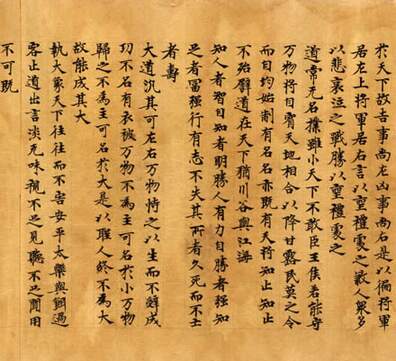 於天下故吉事尚左凶事尚右是以偏將軍
居左上將軍居右言以喪禮處之煞人衆多
以悲哀泣之戰勝以喪禮處之
道常无名樸雖小天下不敢臣王侯若能守
万物將自賓天地相合以降甘露民莫之令
而自均始制有名名亦既有天將知止知止
不殆譬道在天下猶川谷與江海
知人者智自知者明勝人有力自勝者强知
足者富强行有志不失其所者久死而不亡
者壽
大道汎其可左右万物恃之以生而不辭成
功不名有衣被万物不為主可名於小万物
歸之不為主可名於大是以聖人終不為大
故能成其大
執大象天下往往而不害安平太樂與餌過
客止道出言淡无味視不足見聽不足聞用
不可既